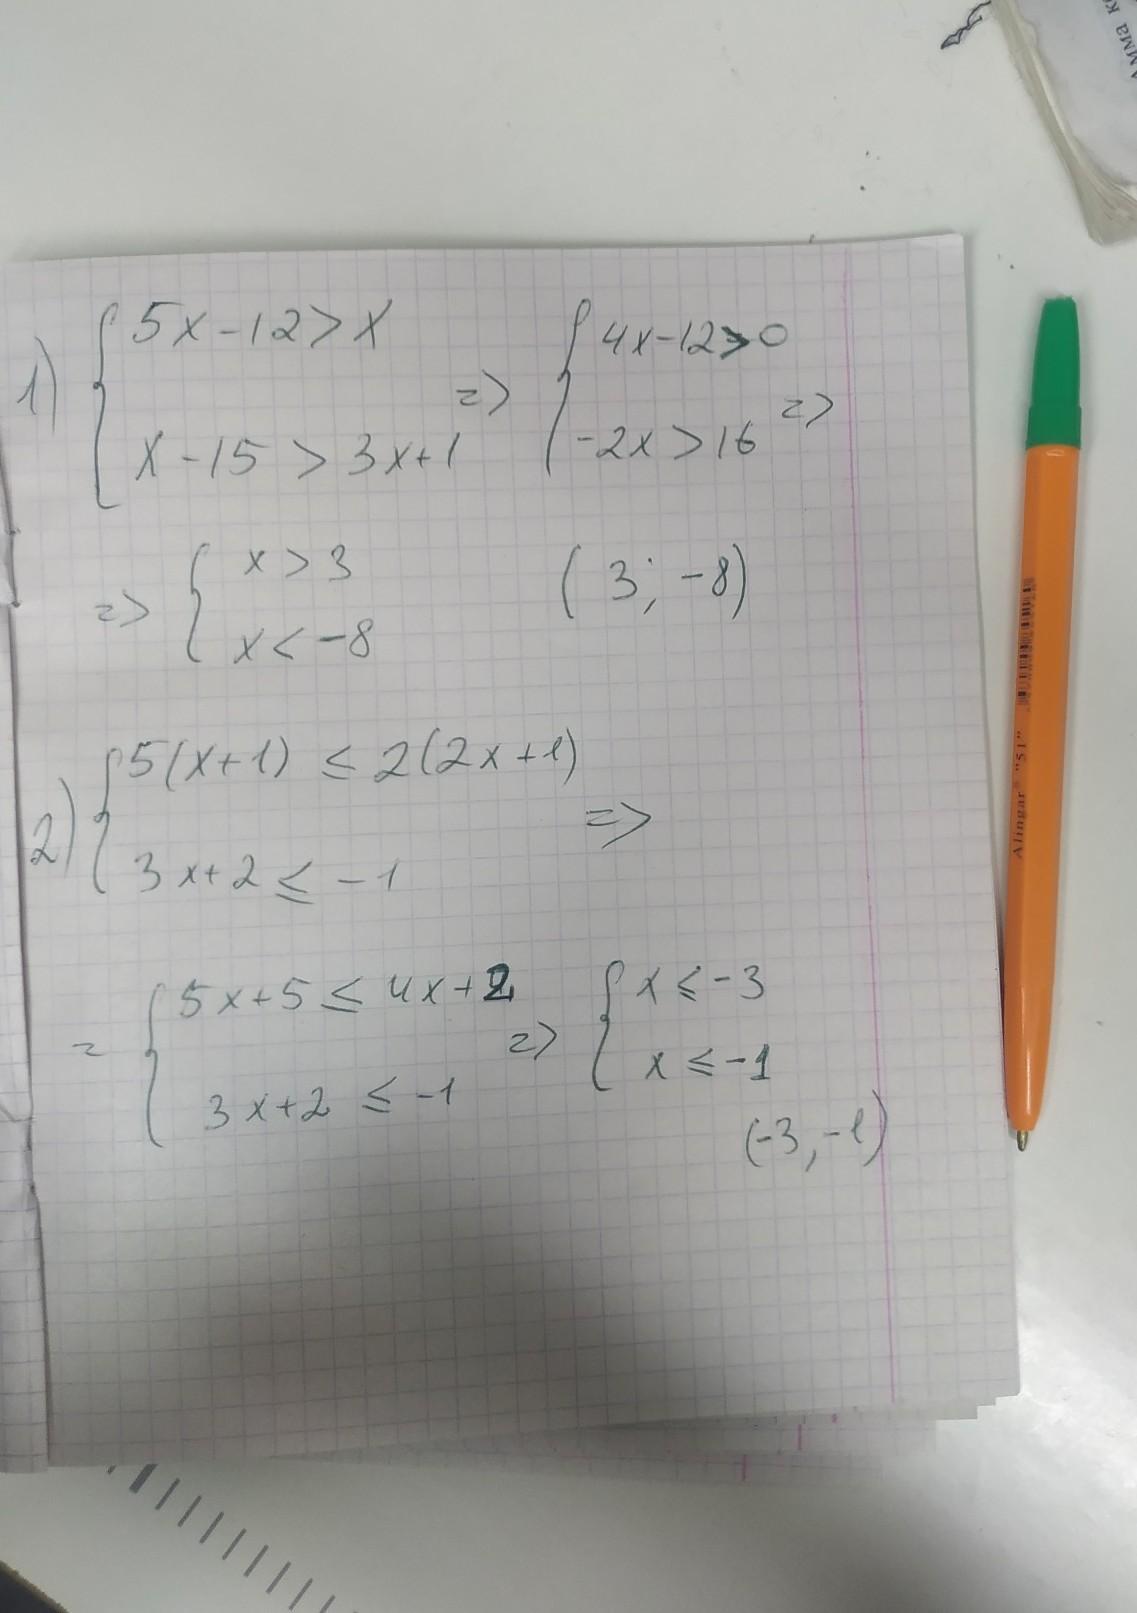 1) { 5x-12>x
x-15>3x+1 => { 4x-12>0
-2x>16 =>
=> { x>3
x<-8 (3;-8)
2) { 5(x+1) ≤ 2(2x+1)
3x+2 ≤ -1 =>
= { 5x+5 ≤ 4x+2
3x+2 ≤ -1 => { x ≤ -3
x ≤ -1
(-3,-1)
Alingar® "51"